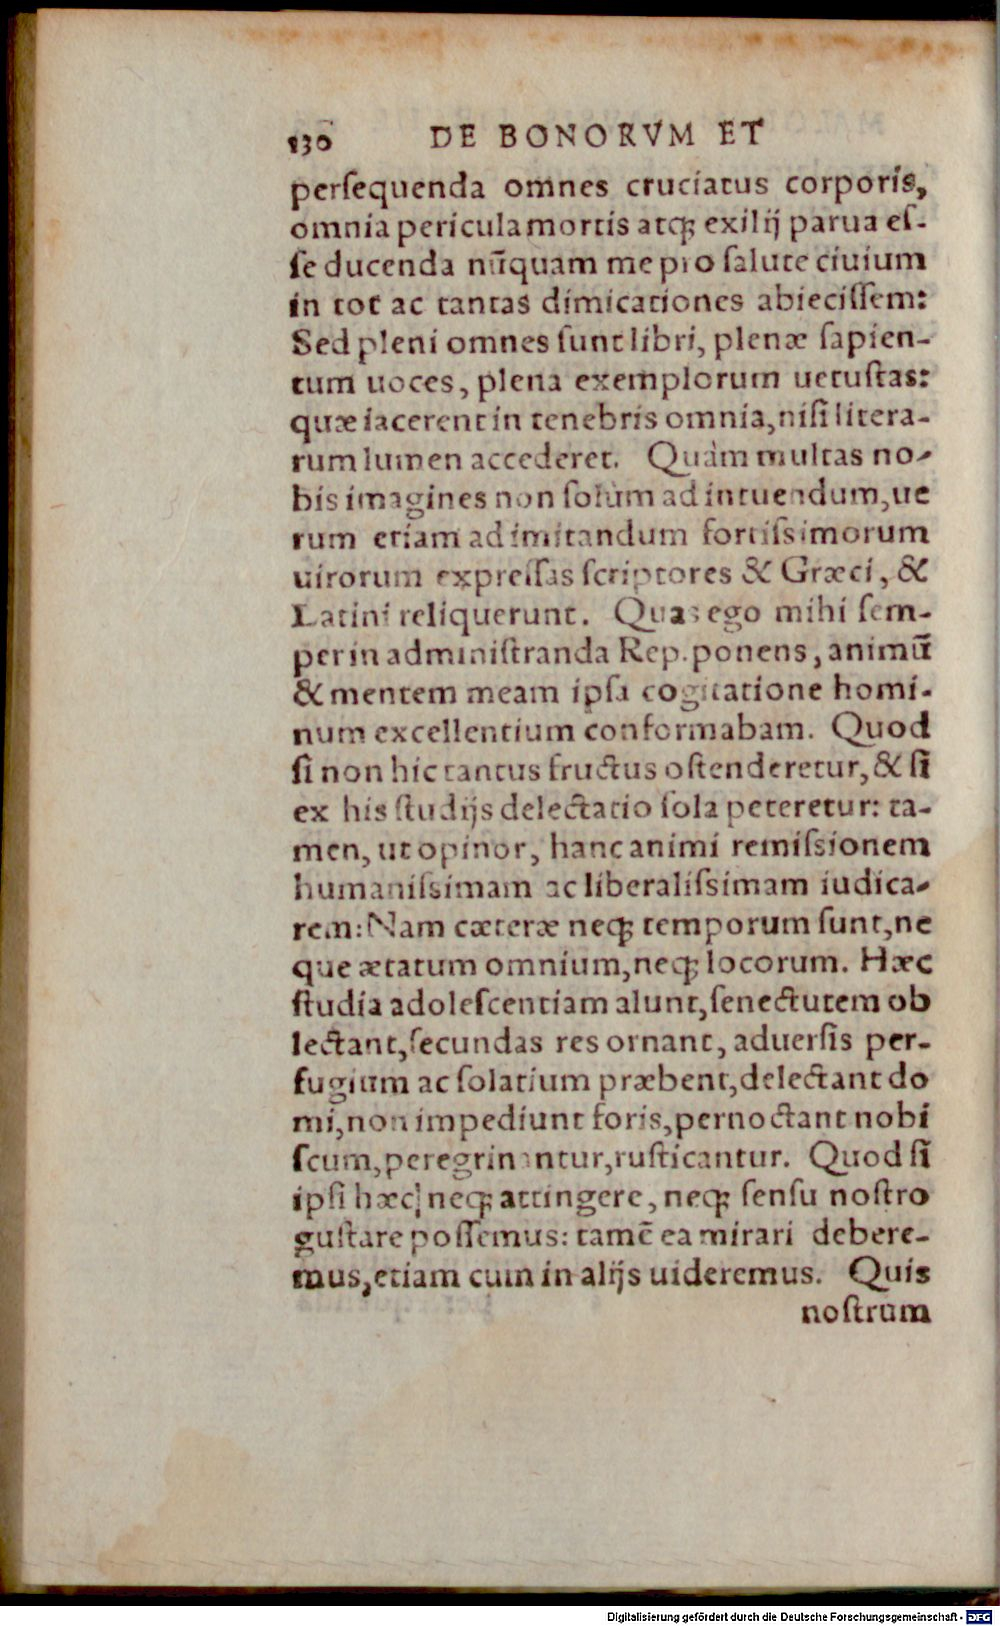 130 DE BONORVM ET
perſequenda omnes cruciatus corporis,
omnia pericula mortis atq; exilij parua eſ-
ſe ducenda nūquam me pro ſalute ciuium
in tot ac tantas dimicationes abieciſſem:
Sed pleni omnes ſunt libri, plenæ ſapien-
tum uoces, plena exemplorum uetuſtas:
quæ iacerent in tenebris omnia, niſi litera-
rum lumen accederet. Quàm multas no-
bis imagines non ſolùm ad intuendum, ue
rum etiam ad imitandum fortiſsimorum
uirorum expreſſas ſcriptores & Græci, &
Latini reliquerunt. Quas ego mihi ſem-
per in adminiſtranda Rep. ponens, animū
& mentem meam ipſa cogitatione homi-
num excellentium conformabam. Quod
ſi non hic tantus fructus oſtenderetur, & ſi
ex his ſtudijs delectatio ſola peteretur: ta-
men, ut opinor, hanc animi remiſsionem
humaniſsimam ac liberaliſsimam iudica-
rem: Nam cæteræ neq; temporum ſunt, ne
que ætatum omnium, neq; locorum. Hæc
ſtudia adoleſcentiam alunt, ſenectutem ob
lectant, ſecundas res ornant, aduerſis per-
fugium ac ſolatium præbent, delectant do
mi, non impediunt foris, pernoctant nobi
ſcum, peregrinantur, ruſticantur. Quod ſi
ipſi hæc neq; attingere, neq; ſenſu noſtro
guſtare poſſemus: tamē ea mirari debere-
mus, etiam cum in alijs uideremus. Quis
noſtrum
Digitalisierung gefördert durch die Deutsche Forschungsgemeinschaft - DFG